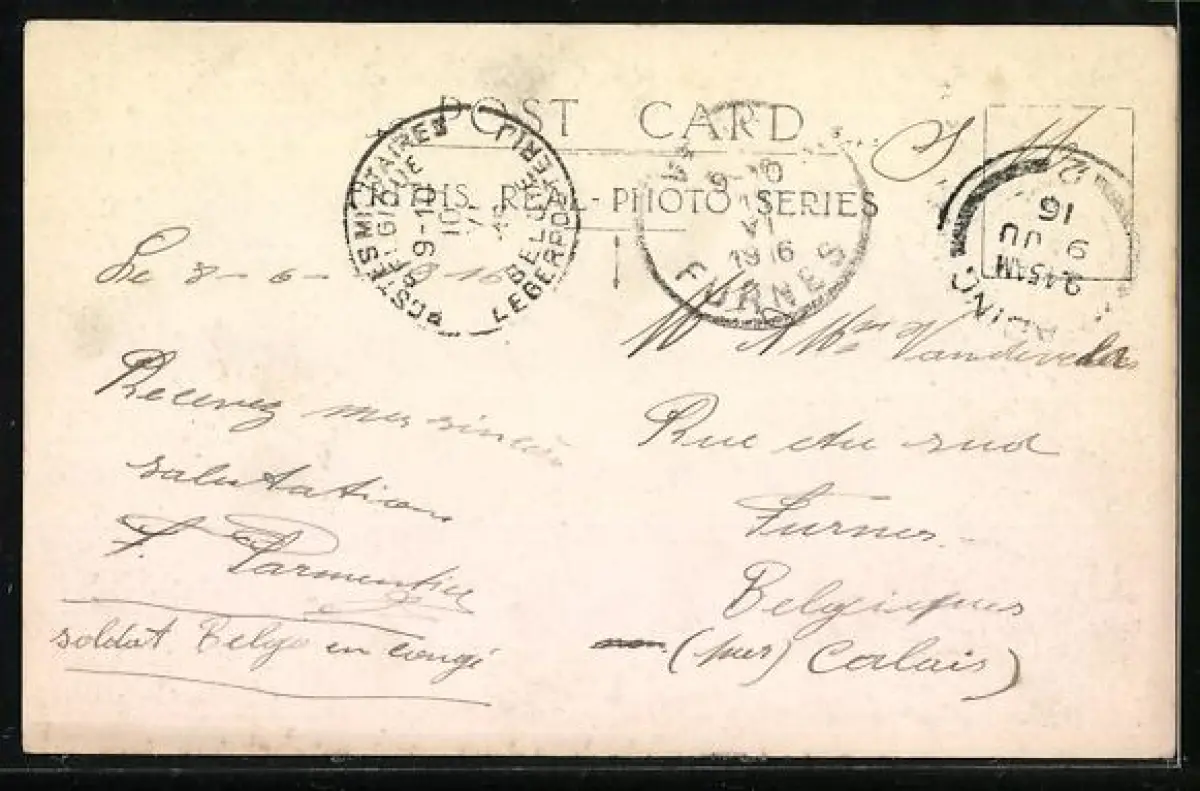 POST CARD
KROMS REAL-PHOTO SERIES
POSTES MILITAIRES
BELGIQUE
9-10
10
BELGIE
LEGERPOSTERIJ
9-10
VI
1916
FURNES
READING
2.45 AM
9 JU
16
S. M.
Le 8-6-1916
Recevez mes sincères
salutations
Parmentier
soldat Belge en congé
M & Mme Vandevelde
Rue du sud
Furnes
Belgique
(par) Calais)